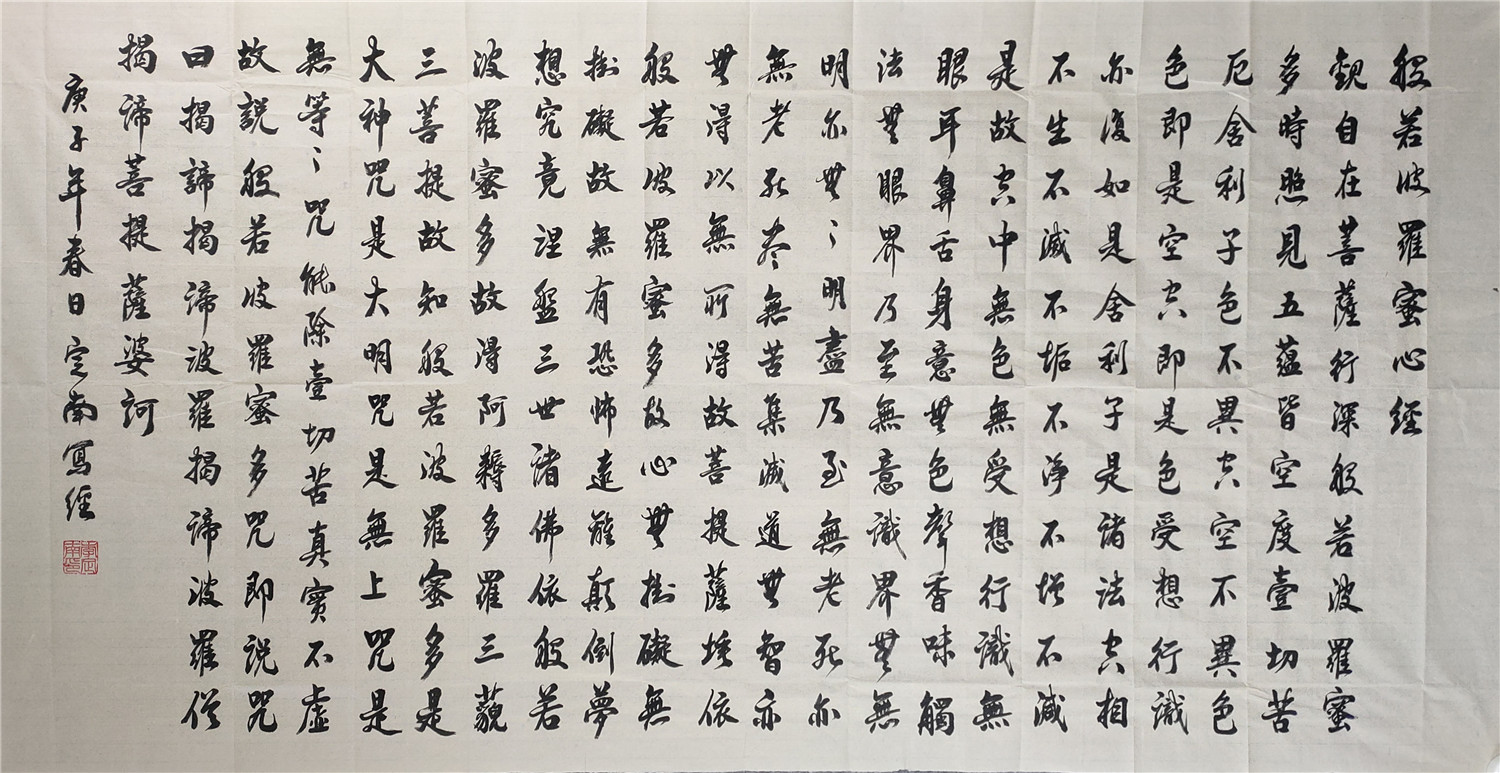 般若波羅蜜心經
觀自在菩薩行深般若波羅蜜
多時照見五蘊皆空度壹切苦
厄舍利子色不異空空不異色
色即是空空即是色受想行識
亦復如是舍利子是諸法空相
不生不滅不垢不淨不增不減
是故空中無色無受想行識無
眼耳鼻舌身意無色聲香味觸
法無眼界乃至無意識界無無
明亦無〻明盡乃至無老死亦
無老死盡無苦集滅道無智亦
無得以無所得故菩提薩埵依
般若波羅蜜多故心無掛礙無
掛礙故無有恐怖遠離顛倒夢
想究竟涅盤三世諸佛依般若
波羅蜜多故得阿耨多羅三藐
三菩提故知般若波羅蜜多是
大神咒是大明咒是無上咒是
無等〻咒能除壹切苦真實不虛
故説般若波羅蜜多咒即説咒
曰揭諦揭諦波羅揭諦波羅僧
揭諦菩提薩婆訶
庚子年春日定南寫經